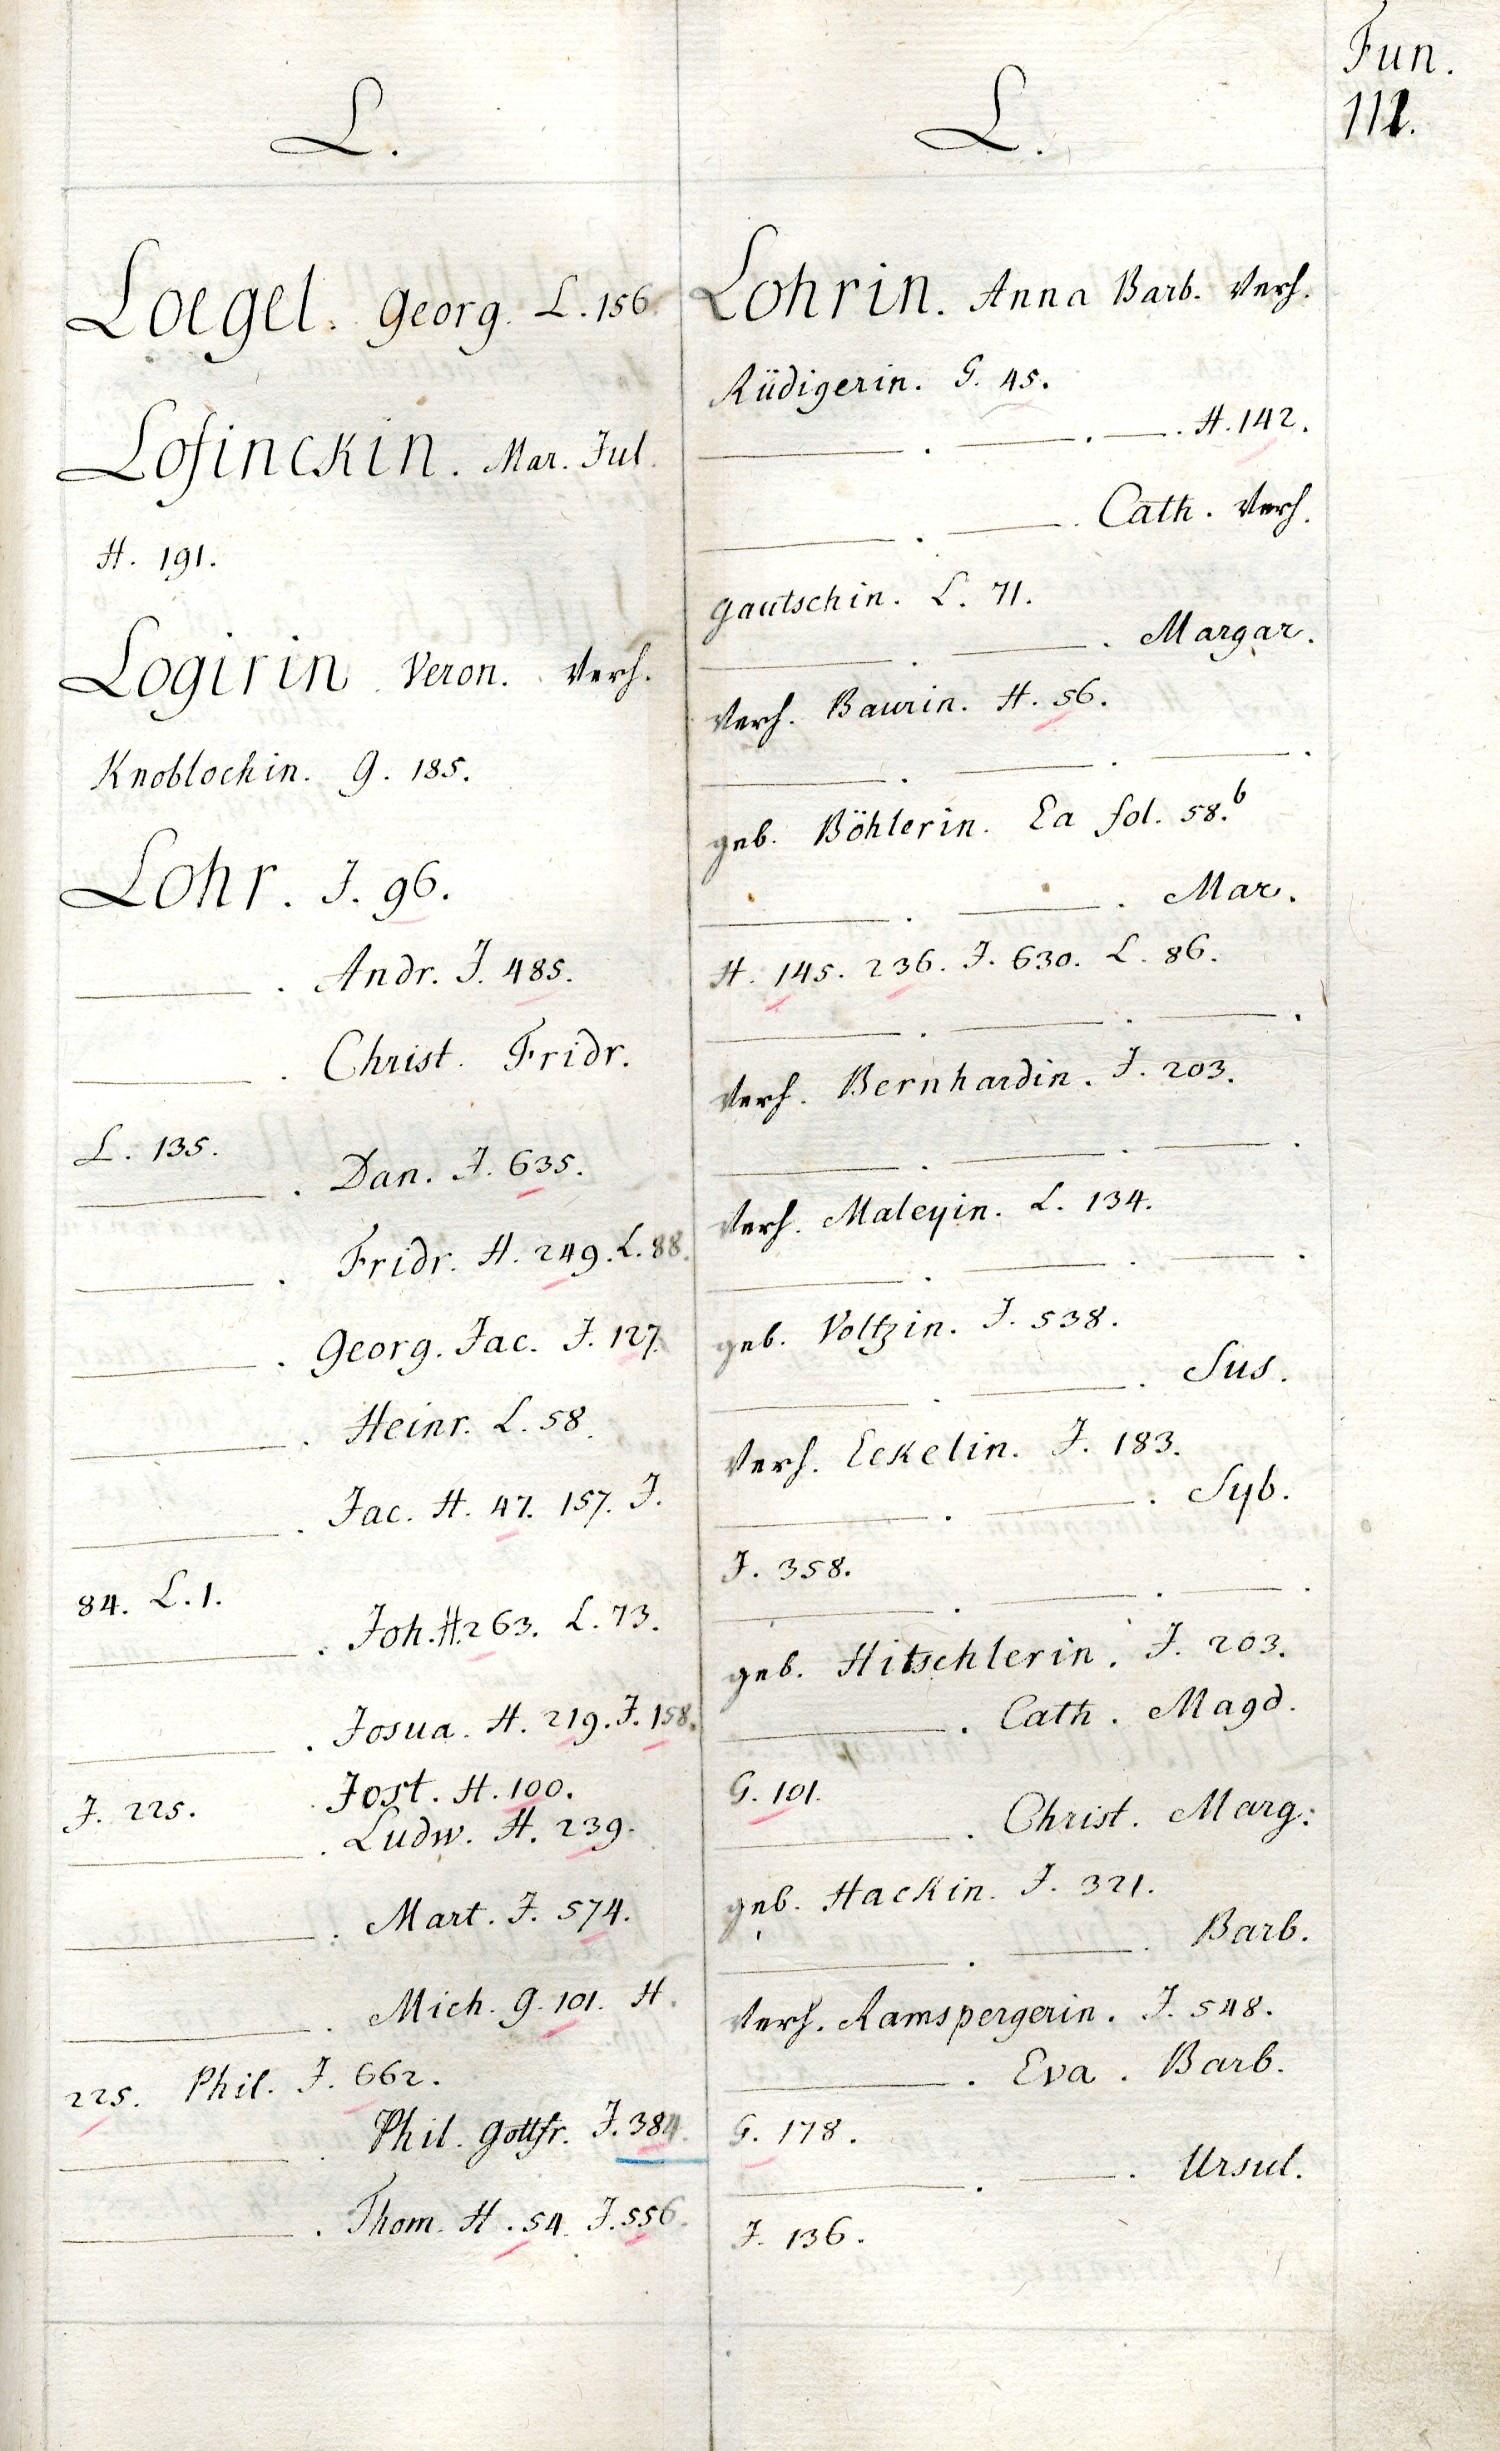 Fun.
111.
L.
Loegel. Georg. L. 156.
Lofinckin. Mar. Jul.
H. 191.
Logirin. Veron. Verh.
Knoblochin. G. 185.
Lohr. J. 96.
———. Andr. J. 485.
———. Christ. Fridr.
L. 135.
———. Dan. J. 635.
———. Fridr. H. 249. L. 88.
———. Georg. Jac. J. 127.
———. Heinr. L. 58.
———. Jac. H. 47. 157. J.
84. L. 1.
———. Joh. H. 263. L. 73.
———. Josua. H. 219. J. 158.
J. 225. Jost. H. 100.
———. Ludw. H. 239.
———. Mart. J. 574.
———. Mich. G. 101. H.
225. Phil. J. 662.
———. Phil. Gottfr. J. 384.
———. Thom. H. 54. J. 556.
L.
Lohrin. Anna Barb. Verh.
Rüdigerin. G. 45.
———. ———. ———. H. 142.
———. ———. Cath. Verh.
Gautschin. L. 71.
———. ———. Margar.
Verh. Baurin. H. 56.
———. ———. ———.
geb. Böhlerin. Ea fol. 58.b
———. ———. Mar.
H. 145. 236. J. 630. L. 86.
———. ———. ———.
Verh. Bernhardin. J. 203.
———. ———. ———.
Verh. Maleyin. L. 134.
———. ———. ———.
geb. Voltzin. J. 538.
———. ———. Sus.
Verh. Eckelin. J. 183.
———. ———. Syb.
J. 358.
———. ———. ———.
geb. Hitschlerin. J. 203.
———. Cath. Magd.
G. 101.
———. Christ. Marg:
geb. Hackin. J. 321.
———. ———. Barb.
Verh. Ramspergerin. J. 548.
———. Eva. Barb.
G. 178.
———. ———. Ursul.
J. 136.